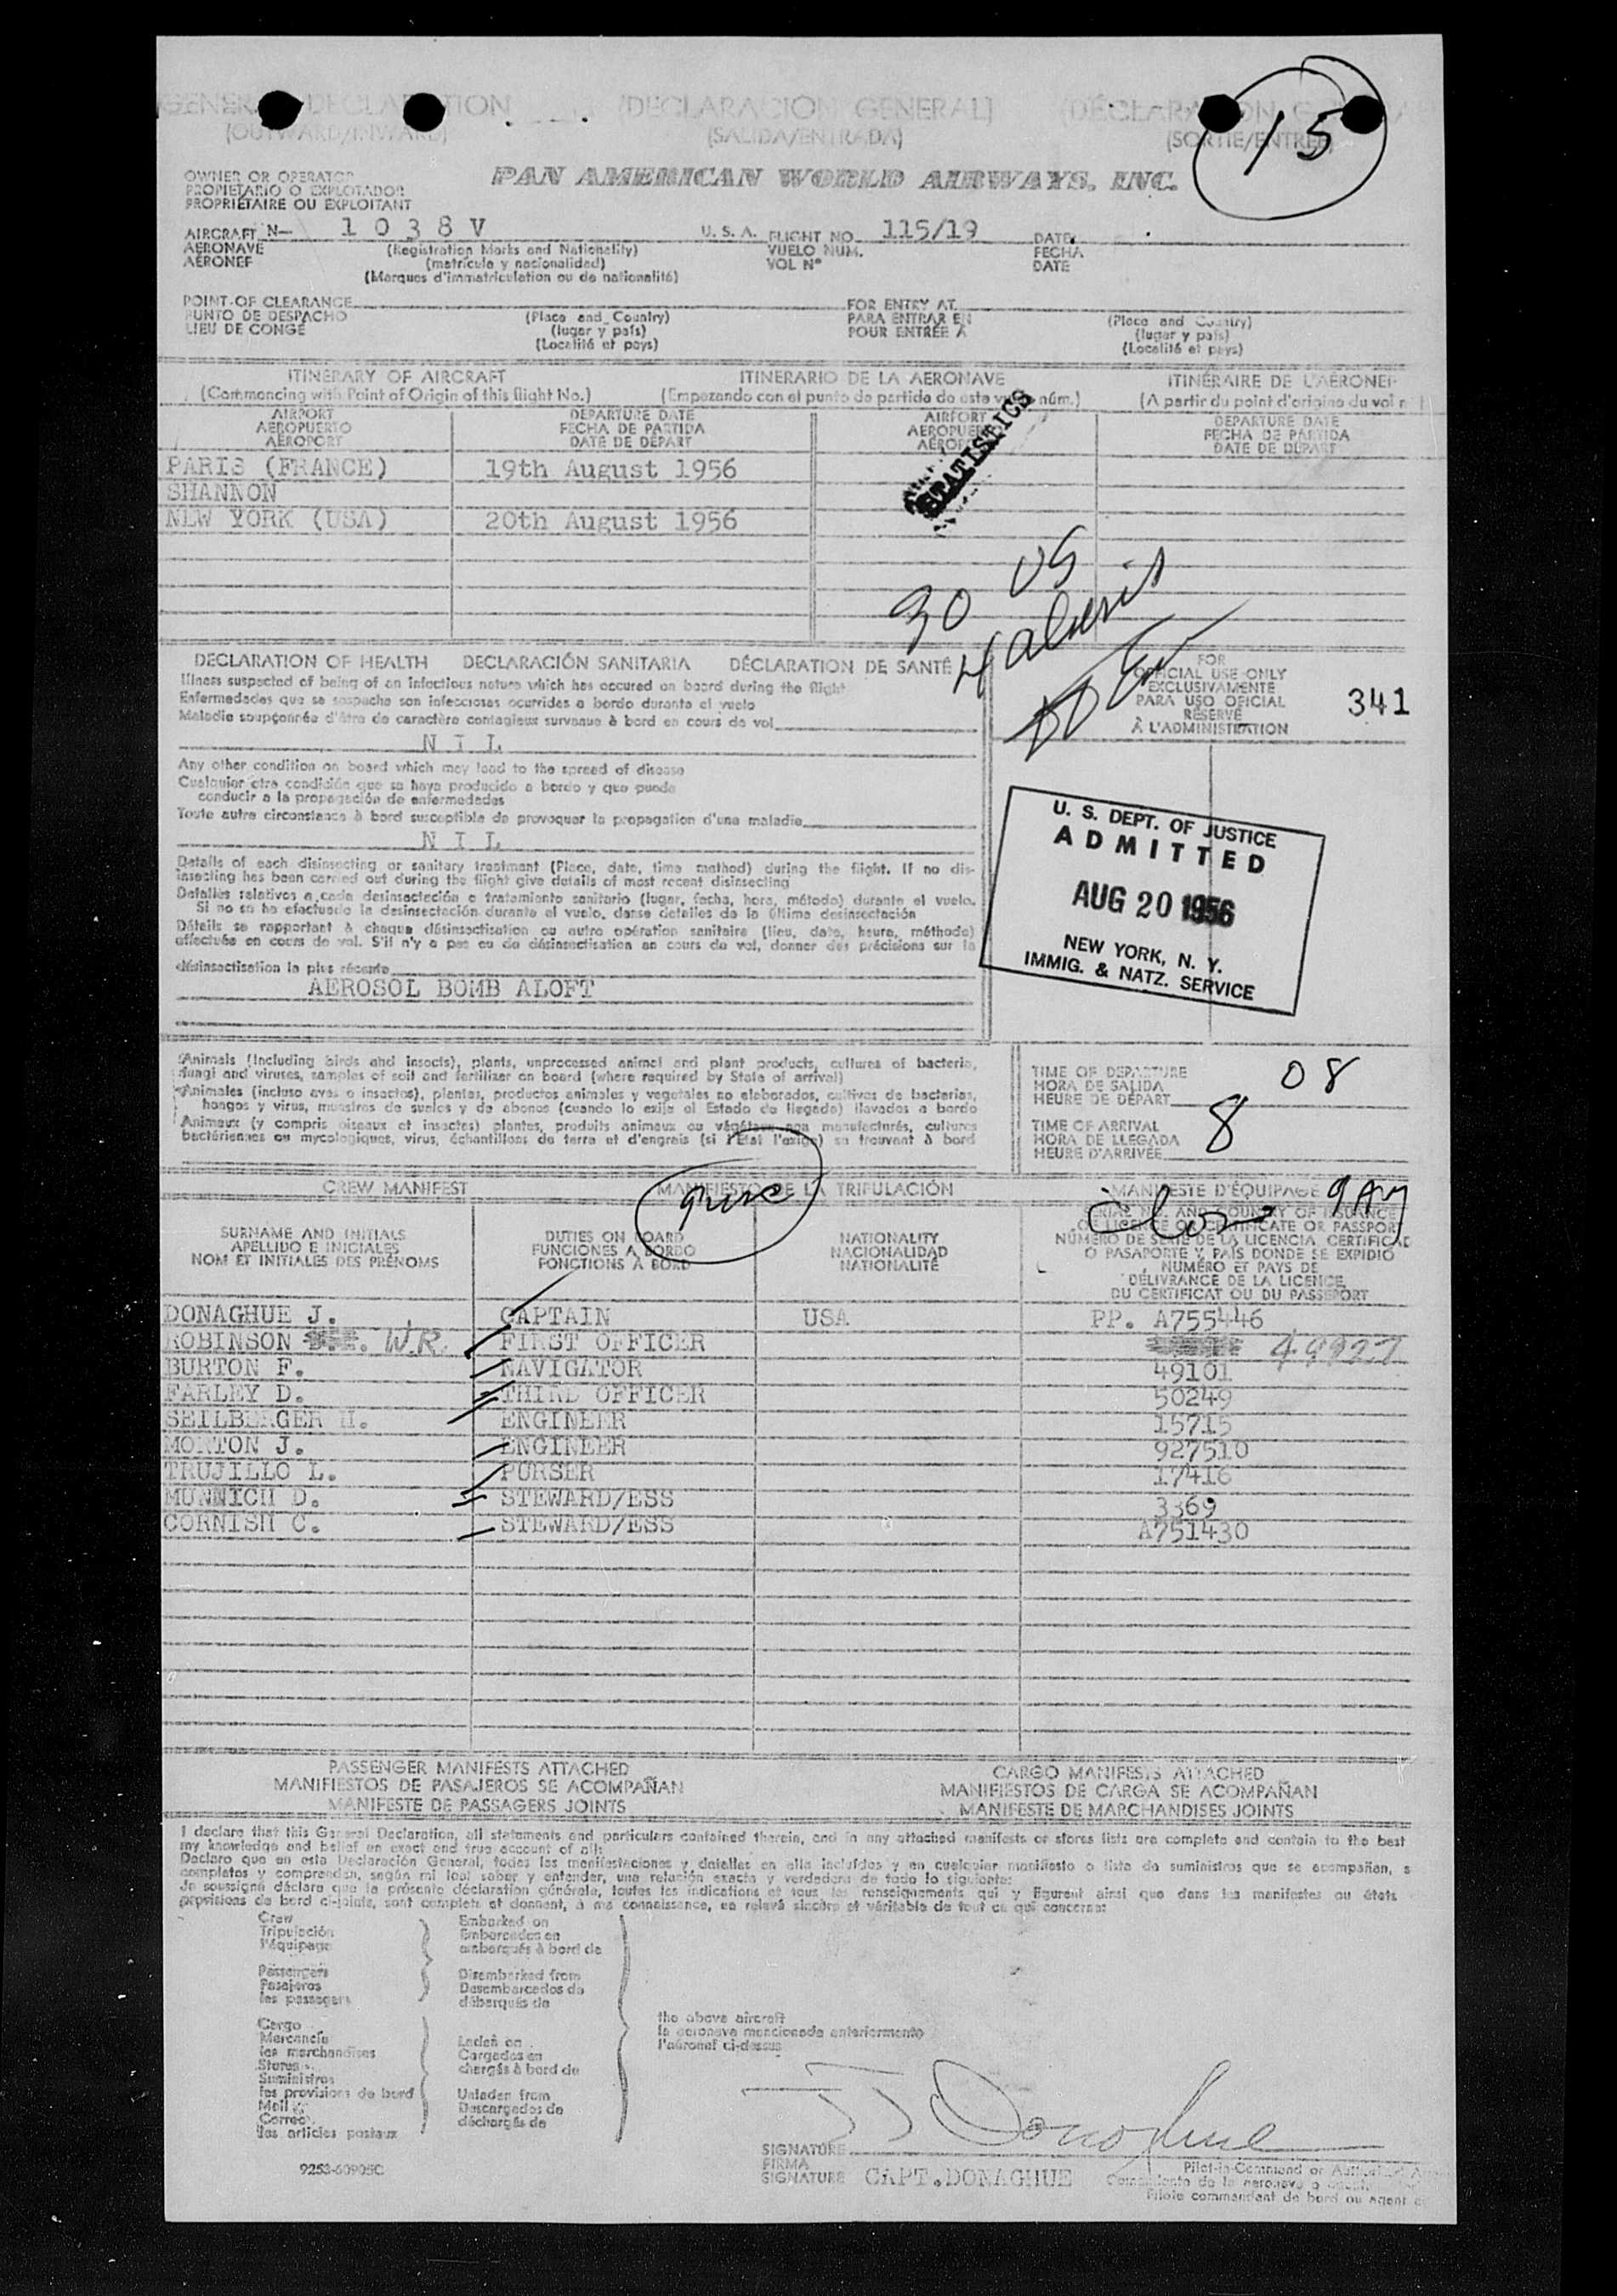 (DECLARACION GENERAL)
(OUTWARD/INWARD) (SALIDA/ENTRADA) (SORTIE/ENTRÉE)
15
OWNER OR OPERATOR
PROPIETARIO O EXPLOTADOR
PROPRIÉTAIRE OU EXPLOITANT
PAN AMERICAN WORLD AIRWAYS, INC.
AIRCRAFT N- 1038V U.S.A. FLIGHT NO. 115/19 DATE
AERONAVE (Registration Marks and Nationality) VUELO NUM. FECHA
AÉRONEF (matrícula y nacionalidad) VOL N° DATE
(Marques d'immatriculation ou de nationalité)
POINT OF CLEARANCE FOR ENTRY AT
PUNTO DE DESPACHO (Place and Country) PARA ENTRAR EN (Place and Country)
LIEU DE CONGÉ (lugar y país) POUR ENTRÉE À (lugar y país)
(Localité et pays) (Localité et pays)
ITINERARY OF AIRCRAFT ITINERARIO DE LA AERONAVE ITINÉRAIRE DE L'AÉRONEF
(Commencing with Point of Origin of this flight No.) (Empezando con el punto de partida de este vuelo núm.) (A partir du point d'origine du vol
AIRPORT DEPARTURE DATE AIRPORT DEPARTURE DATE
AEROPUERTO FECHA DE PARTIDA AEROPUERTO FECHA DE PARTIDA
AÉROPORT DATE DE DÉPART AÉROPORT DATE DE DÉPART
STATISTICS
PARIS (FRANCE) 19th August 1956
SHANNON
NEW YORK (USA) 20th August 1956
30 US
4 aliens
DECLARATION OF HEALTH DECLARACIÓN SANITARIA DÉCLARATION DE SANTÉ
Illness suspected of being of an infectious nature which has occured on board during the flight
Enfermedades que se sospecha son infecciosas ocurridas a bordo durante el vuelo
Maladie soupçonnée d'être de caractère contagieux survenue à bord en cours de vol
NIL
Any other condition on board which may lead to the spread of disease
Cualquier otra condición que se haya producido a bordo y que pueda
conducir a la propagación de enfermedades
Toute autre circonstance à bord susceptible de provoquer la propagation d'une maladie
NIL
Details of each disinsecting or sanitary treatment (Place, date, time method) during the flight. If no dis-
insecting has been carried out during the flight give details of most recent disinsecting
Detalles relativos a cada desinsectación o tratamiento sanitario (lugar, fecha, hora, método) durante el vuelo.
Si no se ha efectuado la desinsectación durante el vuelo, danse detalles de la última desinsectación
Détails se rapportant à chaque désinsectisation ou autre opération sanitaire (lieu, date, heure, méthode)
effectuée en cours de vol. S'il n'y a pas eu de désinsectisation en cours de vol, donner des précisions sur la
désinsectisation la plus récente
AEROSOL BOMB ALOFT
FOR
OFFICIAL USE ONLY
EXCLUSIVAMENTE
PARA USO OFICIAL
RÉSERVÉ
À L'ADMINISTRATION
341
U. S. DEPT. OF JUSTICE
ADMITTED
AUG 20 1956
NEW YORK, N. Y.
IMMIG. & NATZ. SERVICE
Animals (Including birds and insects), plants, unprocessed animal and plant products, cultures of bacteria,
fungi and viruses, samples of soil and fertilizer on board (where required by State of arrival)
Animales (incluso aves o insectos), plantas, productos animales y vegetales no elaborados, cultivos de bacterias,
hongos y virus, muestras de suelos y de abonos (cuando lo exija el Estado de llegada) llevados a bordo
Animaux (y compris oiseaux et insectes) plantes, produits animaux ou végétaux non manufacturés, cultures
bactériennes ou mycologiques, virus, échantillons de terre et d'engrais (si l'État l'exige) se trouvant à bord
TIME OF DEPARTURE 08
HORA DE SALIDA
HEURE DE DÉPART
TIME OF ARRIVAL 8
HORA DE LLEGADA
HEURE D'ARRIVÉE
CREW MANIFEST MANIFIESTO DE LA TRIPULACIÓN MANIFESTE D'ÉQUIPAGE 9AM
SURNAME AND INITIALS
APELLIDO E INICIALES
NOM ET INITIALES DES PRÉNOMS
DUTIES ON BOARD
FUNCIONES A BORDO
FONCTIONS À BORD
NATIONALITY
NACIONALIDAD
NATIONALITÉ
SERIAL NO. AND COUNTRY OF ISSUANCE
OF LICENCE OR CERTIFICATE OR PASSPORT
NÚMERO DE SERIE DE LA LICENCIA, CERTIFICAD
O PASAPORTE Y PAÍS DONDE SE EXPIDIÓ
NUMÉRO ET PAYS DE
DÉLIVRANCE DE LA LICENCE,
DU CERTIFICAT OU DU PASSEPORT
DONAGHUE J. CAPTAIN USA PP. A755446
ROBINSON W.R. FIRST OFFICER 49927
BURTON F. NAVIGATOR 49101
FARLEY D. THIRD OFFICER 50249
SEILBERGER H. ENGINEER 15715
MORTON J. ENGINEER 927510
TRUJILLO L. PURSER 17416
MUNNICH D. STEWARD/ESS 3369
CORNISH C. STEWARD/ESS A751430
PASSENGER MANIFESTS ATTACHED CARGO MANIFESTS ATTACHED
MANIFIESTOS DE PASAJEROS SE ACOMPAÑAN MANIFIESTOS DE CARGA SE ACOMPAÑAN
MANIFESTE DE PASSAGERS JOINTS MANIFESTE DE MARCHANDISES JOINTS
I declare that this General Declaration, all statements and particulars contained therein, and in any attached manifests or stores lists are complete and contain to the best
my knowledge and belief an exact and true account of all:
Declaro que en esta Declaración General, todas las manifestaciones y detalles en ella incluídos y en cualquier manifiesto o lista de suministros que se acompañan, s
completos y comprenden, según mi leal saber y entender, una relación exacta y verdadera de todo lo siguiente:
Je soussigné déclare que la présente déclaration générale, toutes les indications et tous les renseignements qui y figurent ainsi que dans les manifestes ou états
provisions de bord ci-joints, sont complets et donnent, à ma connaissance, un relevé sincère et véritable de tout ce qui concerne:
Crew Embarked on
Tripulación Embarcados en
l'équipage embarqués à bord de
Passengers Disembarked from
Pasajeros Desembarcados de
les passagers débarqués de
the above aircraft
la aeronave mencionada anteriormente
l'aéronef ci-dessus
Cargo
Mercancía Laden on
les marchandises Cargados en
Stores chargés à bord de
Suministros
les provisions de bord Unladen from
Mail Descargados de
Correo déchargés de
les articles postaux
JJ Donoghue
SIGNATURE
FIRMA
SIGNATURE CAPT.DONAGHUE
Pilot-in-Command or
Comandante de la aeronave o
Pilote commandant de bord ou agent
9253-60905C